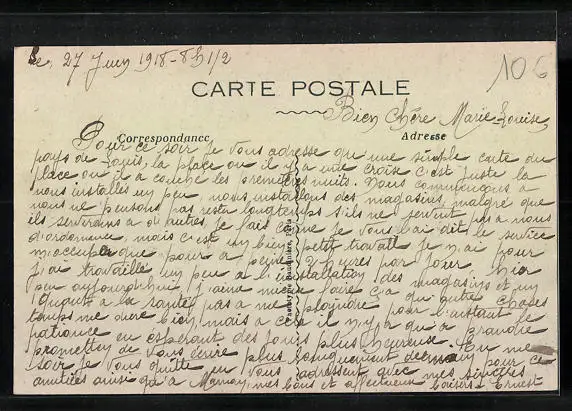 Le, 27 Juin 1918 - 8h 1/2
10 €
CARTE POSTALE
Bien Chère Marie Louise,
Correspondance
Adresse
Pour ce soir je vous adresse qu'une simple carte du
pays de Louis, la place ou il y a une croix c'est juste la
place ou il a couché les premières nuits. Nous commençons a
nous installer un peu, nous installons des magasins, malgré que
nous ne pensons pas resté longtemps s'ils ne servent pas a nous
ils serviront a d'autres, je fais comme je vous l'ai dit le service
d'ordonnance, mais c'est un bien petit travail je n'ai pour
m'occuper que pour a peine 2 heures par jour, hier
j'ai travaillé un peu a l'installation des magasins et un
peu aujourd'hui, j'aime mieux faire ça qu'autre choses
Quant a la santé pas a me plaindre pour l'instant le
temps me dure bien, mais a cela il n'y a qu'a prendre
patience en esperant des jours plus heureuse. En me
promettez de vous écrire plus longuement demain pour ce
soir je vous quitte en vous adressent avec mes sincères
amitiées ainsi qu'a Maman, mes bons et affectueux baisers - Ernest
Phototypie Baudinière, Paris